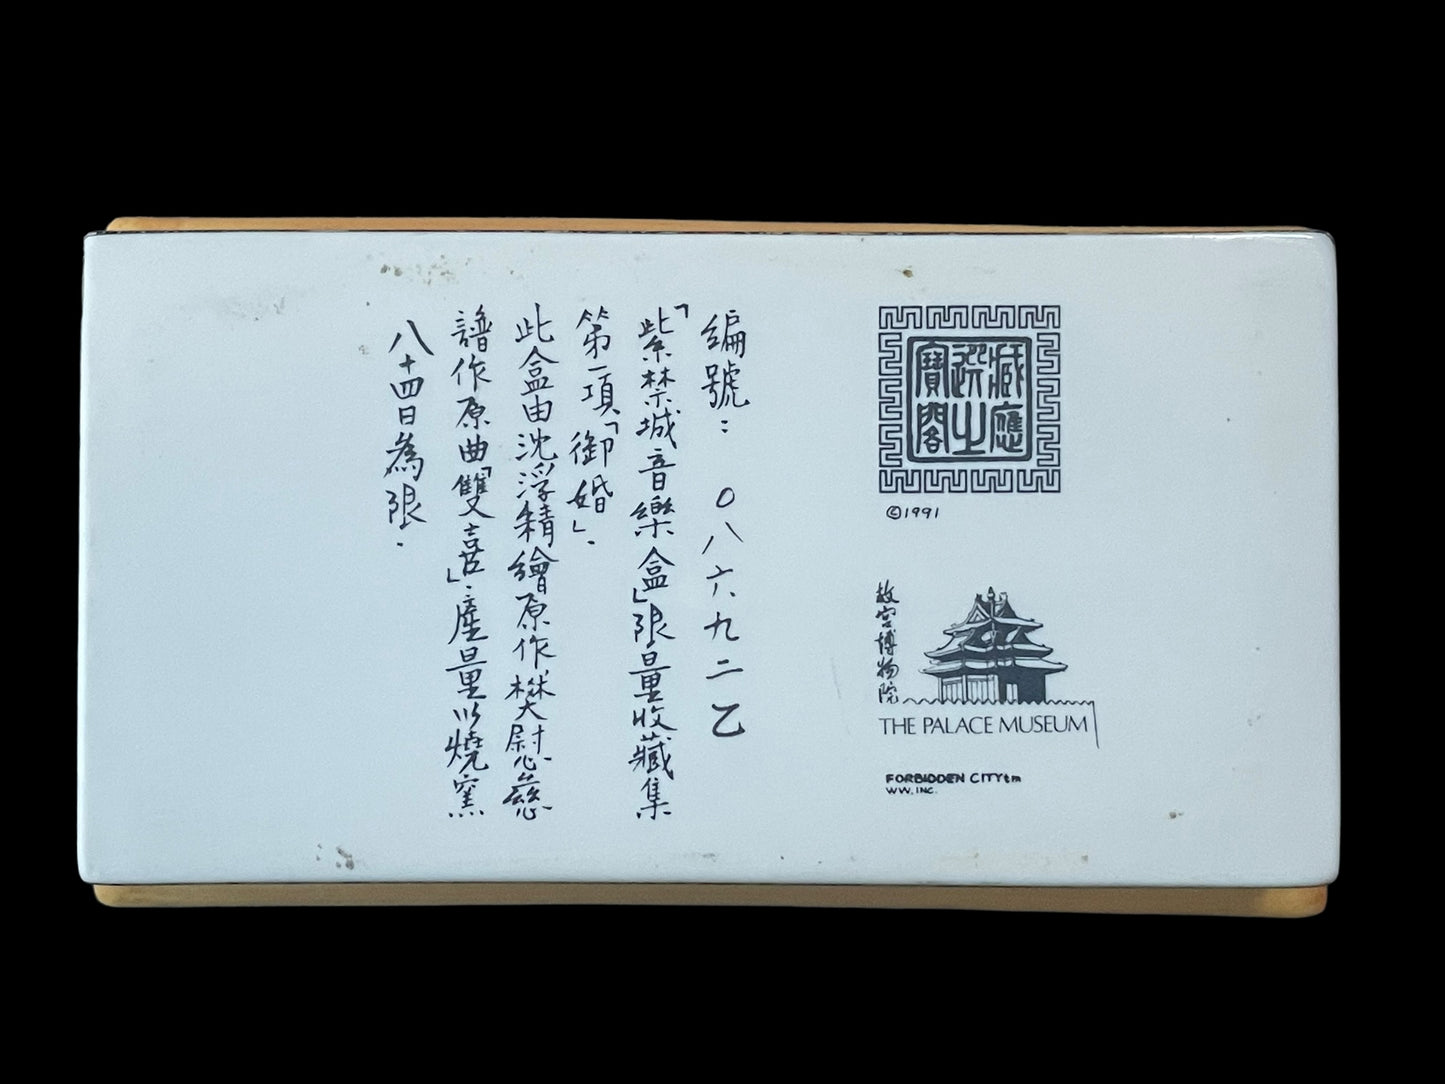 藏應
選之
寶閣
©1991
故宮博物院
THE PALACE MUSEUM
FORBIDDEN CITYtm
WW, INC.
編號： 〇八六九二乙
「紫禁城音樂盒」限量收藏集
第一項「御婚」．
此盒由沈浮精繪原作，樊慰慈
譜作原曲「雙喜」．產量以燒窯
八十四日為限．